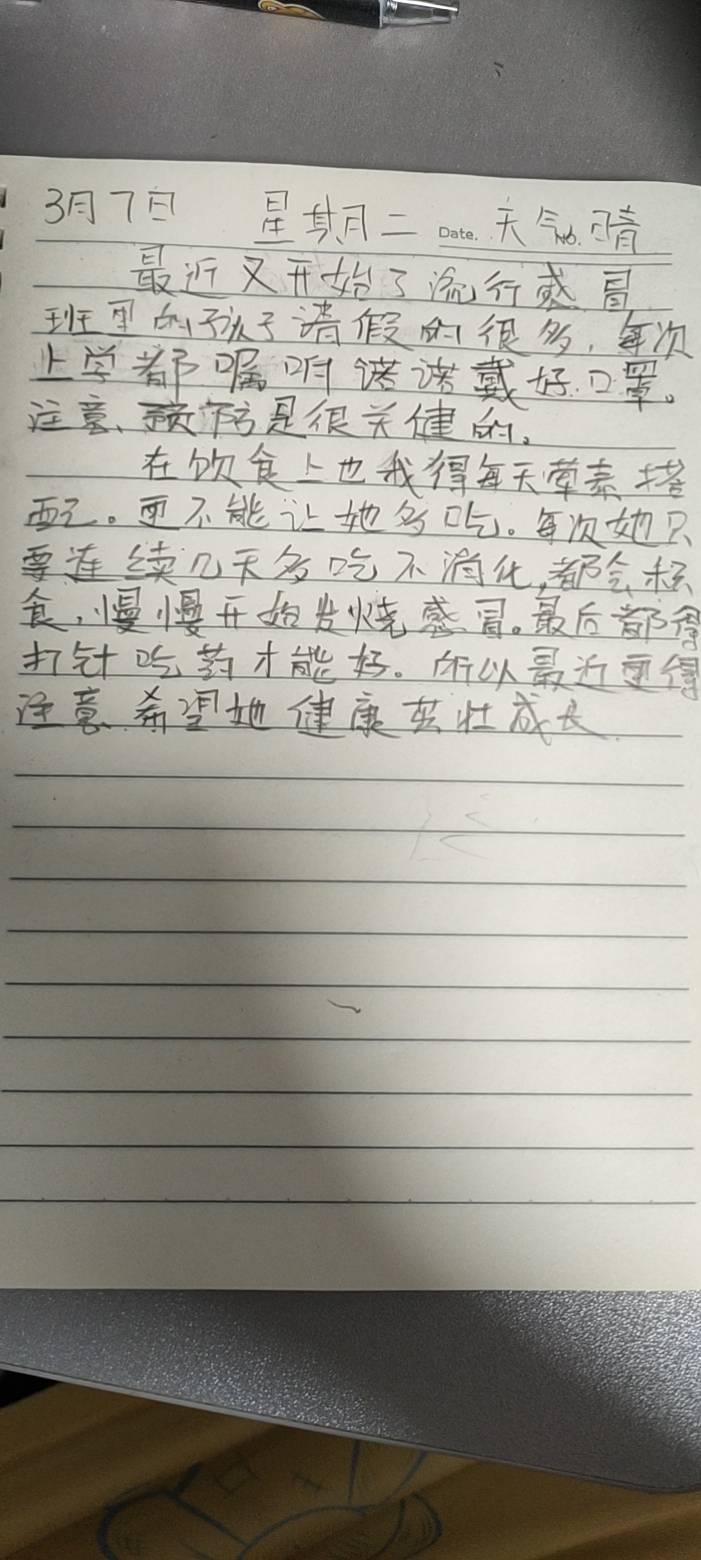 3月7日 星期二 Date. 天气No. 晴
最近又开始了流行感冒
班里的孩子请假的很多，每次
上学都嘱咐诺诺戴好口罩。
注意、预防是很关健的。
在饮食上也我得每天荤素搭
配。更不能让她多吃。每次她只
要连续几天多吃不消化，都会积
食，慢慢开始发烧感冒。最后都得
打针吃药才能好。所以最近更得
注意 希望她健康茁壮成长